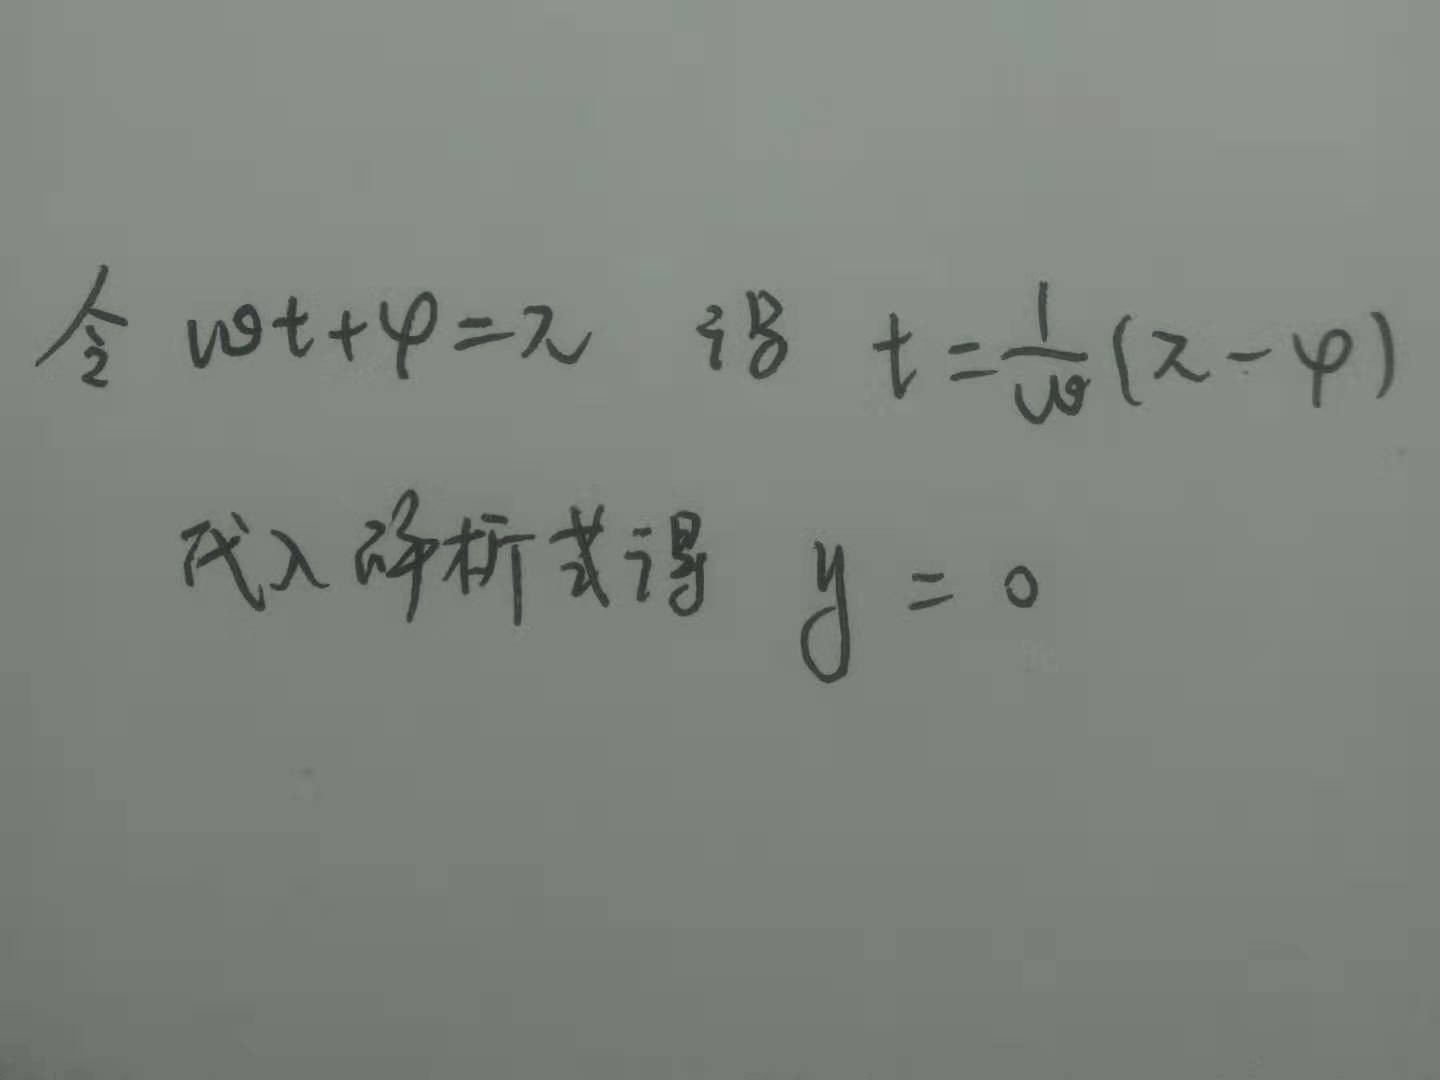 令 ωt+φ=π 得 t=1/ω(π-φ)
代入解析式得 y=0